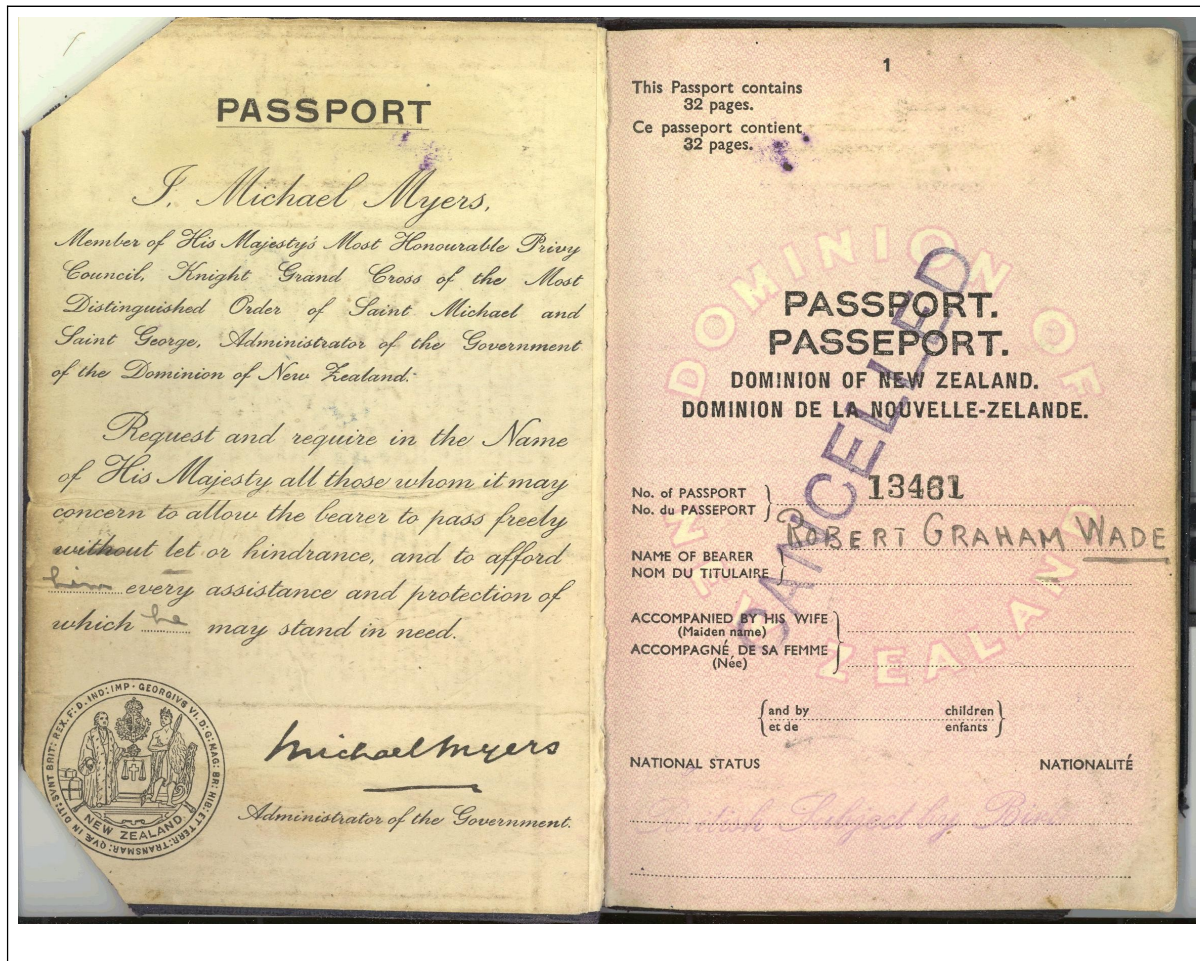 PASSPORT
I, Michael Myers,
Member of His Majesty's Most Honourable Privy
Council, Knight Grand Cross of the Most
Distinguished Order of Saint Michael and
Saint George, Administrator of the Government
of the Dominion of New Zealand.
Request and require in the Name
of His Majesty all those whom it may
concern to allow the bearer to pass freely
without let or hindrance, and to afford
him every assistance and protection of
which he may stand in need.
GEORGIVS VI. D: G: MAG: BR: HIB: ET TERR: TRANSMAR: QVÆ IN DIT: SVNT BRIT: REX. F: D. IND: IMP
NEW ZEALAND
Michael Myers
Administrator of the Government.
1
This Passport contains
32 pages.
Ce passeport contient
32 pages.
DOMINION OF
NEW ZEALAND
PASSPORT.
PASSEPORT.
DOMINION OF NEW ZEALAND.
DOMINION DE LA NOUVELLE-ZELANDE.
CANCELLED
No. of PASSPORT
No. du PASSEPORT
13461
ROBERT GRAHAM WADE
NAME OF BEARER
NOM DU TITULAIRE
ACCOMPANIED BY HIS WIFE
(Maiden name)
ACCOMPAGNÉ DE SA FEMME
(Née)
and by children
et de enfants
NATIONAL STATUS NATIONALITÉ
British Subject by Birth